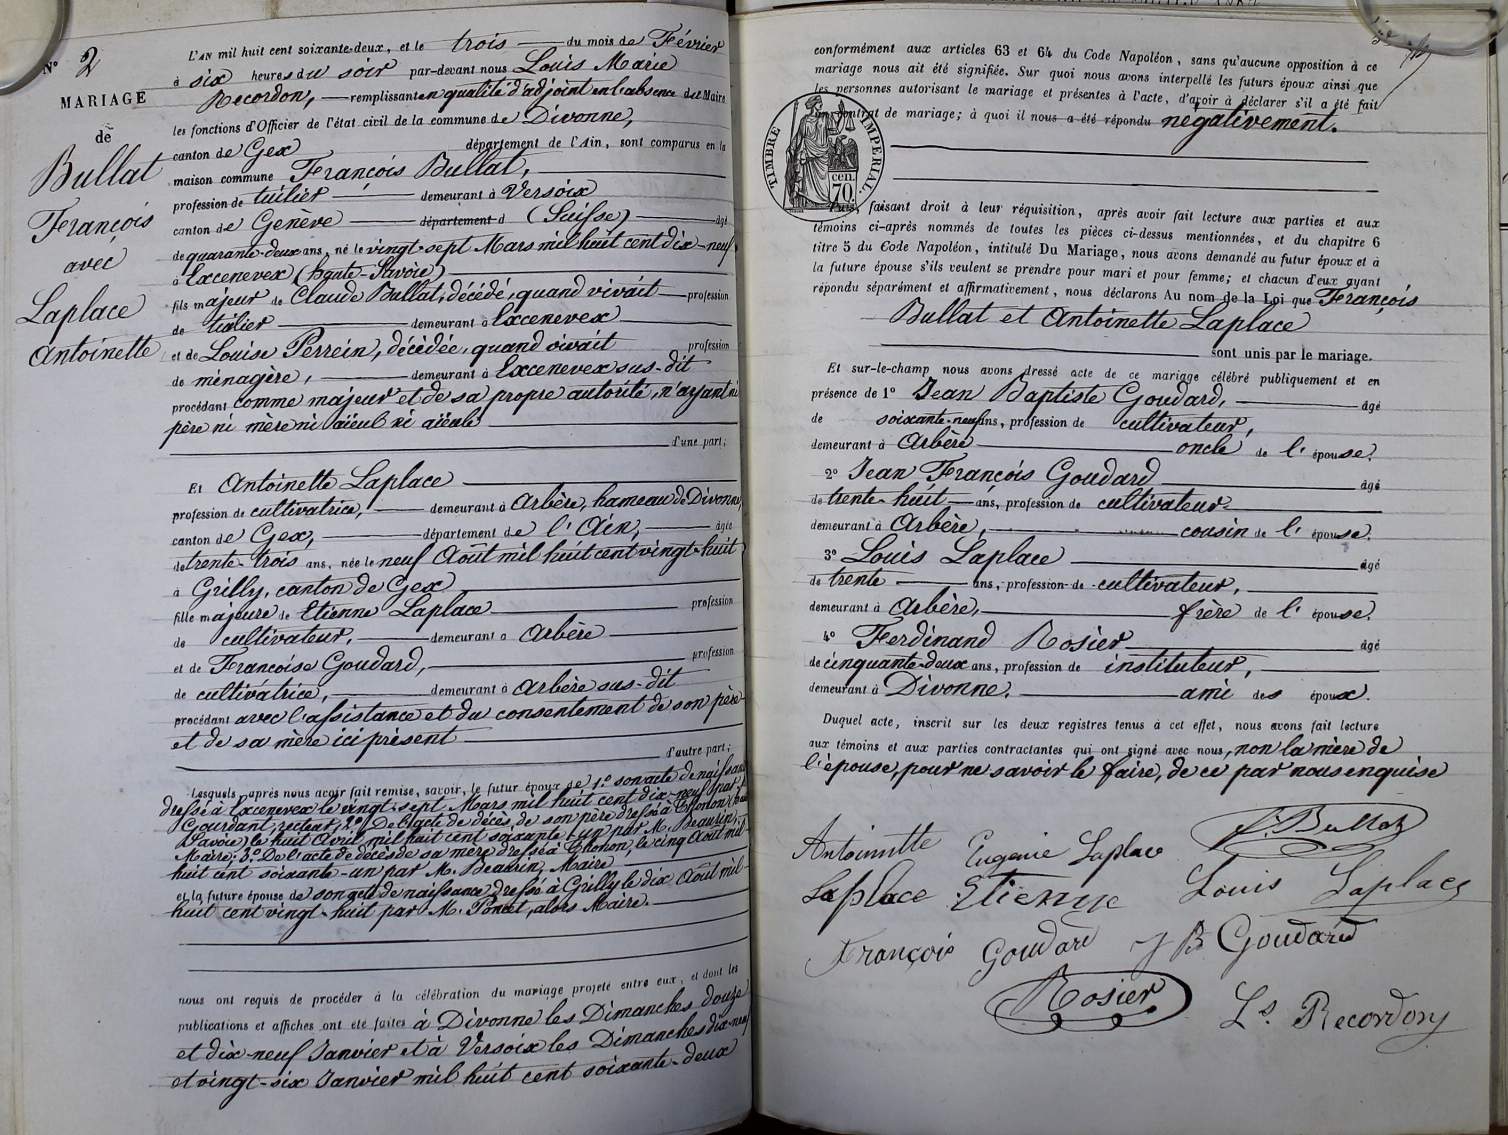 N° 2
MARIAGE
de
Bullat
François
avec
Laplace
Antoinette
L'AN mil huit cent soixante-deux, et le trois du mois de Février
à six heures du soir par-devant nous Louis Marie
Recordon, remplissant en qualité d'adjoint en l'absence du Maire
les fonctions d'Officier de l'état civil de la commune de Divonne,
canton de Gex département de l'Ain, sont comparus en la
maison commune François Bullat,
profession de tuilier demeurant à Versoix
canton de Genève département d (Suisse) âgé
de quarante-deux ans, né le vingt-sept Mars mil huit cent dix-neuf
à Excenevex (haute-Savoie)
fils majeur de Claude Bullat, décédé, quand vivait profession
de tuilier demeurant à Excenevex
et de Louise Perrein, décédée, quand vivait profession
de ménagère, demeurant à Excenevex sus-dit
procédant comme majeur et de sa propre autorité, n'ayant ni
père ni mère ni aïeul ni aïeule
d'une part;
Et Antoinette Laplace
profession de cultivatrice, demeurant à Arbère, hameau de Divonne,
canton de Gex, département de l'Ain, âgée
de trente-trois ans, née le neuf Août mil huit cent vingt-huit
à Grilly, canton de Gex
fille majeure de Etienne Laplace profession
de cultivateur, demeurant à Arbère
et de Francoise Goudard, profession
de cultivatrice, demeurant à Arbère sus-dit
procédant avec l'assistance et du consentement de son père
et de sa mère ici présent
d'autre part;
Lesquels, après nous avoir fait remise, savoir, le futur époux de 1° son acte de naissance
dressé à Excenevex le vingt-sept Mars mil huit cent dix-neuf par M.
Gourdant, recteur, 2° De l'acte de décès de son père dressé à Thonon (haute
Savoie) le huit Avril mil huit cent soixante-un par M. Beaurin,
Maire; 3° De l'acte de décès de sa mère dressé à Thonon, le cinq Août mil
huit cent soixante-un par M. Beaurin, Maire
et la future épouse de son acte de naissance dressé à Grilly le dix Août mil
huit cent vingt-huit par M. Poncet, alors Maire.
nous ont requis de procéder à la célébration du mariage projeté entre eux, et dont les
publications et affiches ont été faites à Divonne les Dimanches douze
et dix-neuf Janvier et à Versoix les Dimanches dix-neuf
et vingt-six Janvier mil huit cent soixante-deux
conformément aux articles 63 et 64 du Code Napoléon, sans qu'aucune opposition à ce
mariage nous ait été signifiée. Sur quoi nous avons interpellé les futurs époux ainsi que
les personnes autorisant le mariage et présentes à l'acte, d'avoir à déclarer s'il a été fait
un contrat de mariage; à quoi il nous a été répondu négativement.
TIMBRE IMPERIAL
cen.
70.
Puis, faisant droit à leur réquisition, après avoir fait lecture aux parties et aux
témoins ci-après nommés de toutes les pièces ci-dessus mentionnées, et du chapitre 6
titre 5 du Code Napoléon, intitulé Du Mariage, nous avons demandé au futur époux et à
la future épouse s'ils veulent se prendre pour mari et pour femme; et chacun d'eux ayant
répondu séparément et affirmativement, nous déclarons Au nom de la Loi que François
Bullat et Antoinette Laplace
sont unis par le mariage.
Et sur-le-champ nous avons dressé acte de ce mariage célébré publiquement et en
présence de 1° Jean Baptiste Goudard, âgé
de soixante-neuf ans, profession de cultivateur,
demeurant à Arbère oncle de l'épouse.
2° Jean François Goudard âgé
de trente-huit ans, profession de cultivateur
demeurant à Arbère, cousin de l'épouse.
3° Louis Laplace âgé
de trente ans, profession de cultivateur,
demeurant à Arbère, frère de l'épouse.
4° Ferdinand Rosier âgé
de cinquante-deux ans, profession de instituteur,
demeurant à Divonne. ami des époux.
Duquel acte, inscrit sur les deux registres tenus à cet effet, nous avons fait lecture
aux témoins et aux parties contractantes qui ont signé avec nous, non la mère de
l'épouse, pour ne savoir le faire, de ce par nous enquise
Antoinette Eugenie Laplace F. Bullat
Laplace Etienne Louis Laplace
François Goudard J B Goudard
Rosier Ls. Recordon